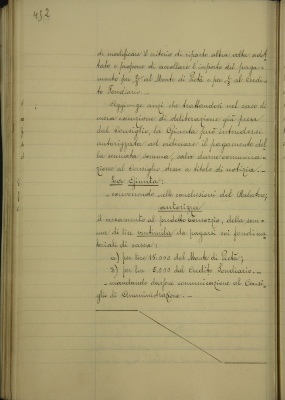 452
di modificare il criterio di riparto altra volta adot-
tato e propone di accollare l'importo del paga-
mento per ¾ al Monte di Pietà e per ¼ al Credi-
to Fondiario.
Aggiunge anzi che trattandosi nel caso di
mera esecuzione di deliberazione già presa
dal Consiglio, la Giunta può intendersi
autorizzata ad ordinare il pagamento del-
la somma, salvo darne comunica-
zione al Consiglio stesso a titolo di notizia.
La Giunta:
convenendo nelle conclusioni del Relatore,
autorizza
il versamento al predetto Consorzio, della som-
ma di lire ventimila da pagarsi coi fondi
di cassa:
a) per lire 15.000 del Monte di Pietà;
b) per lire 5.000 del Credito Fondiario.
mandando darsene comunicazione al Consi-
glio di Amministrazione.